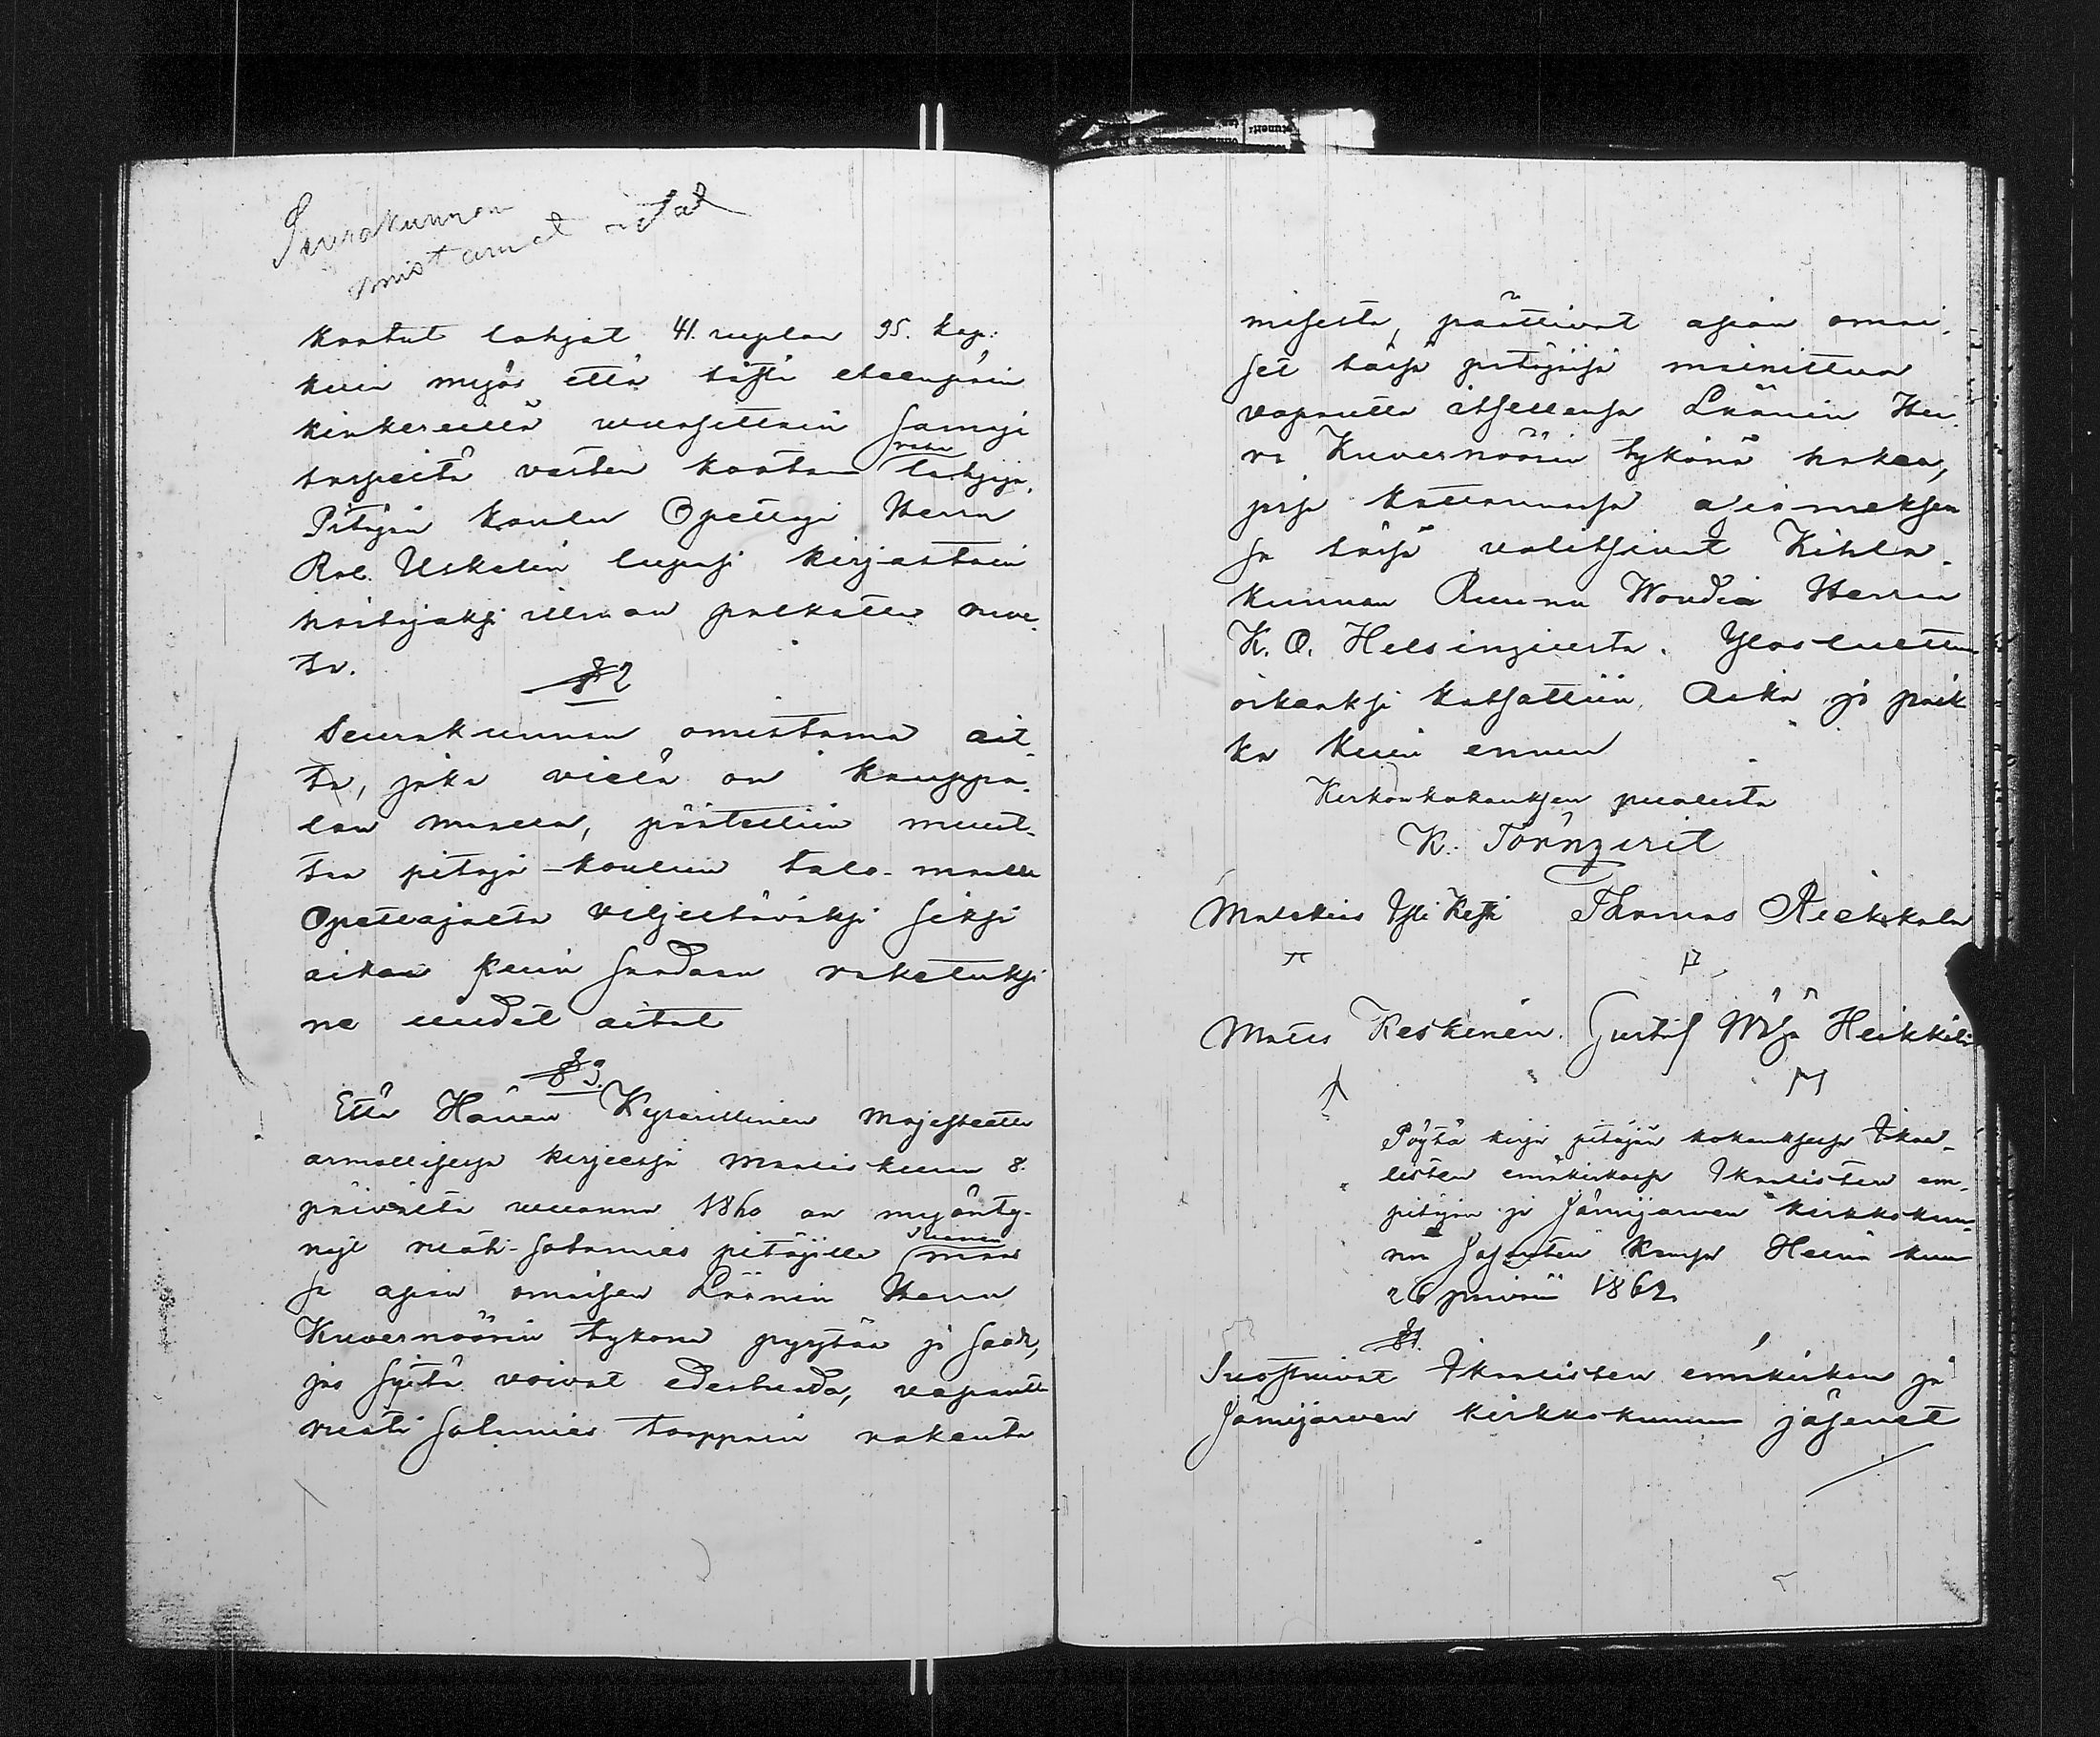 Seurakunnan
omistamat aitat
kootut lahjat 41. ruplan 95. kop:
kuin myös että tästä eteenpäin
kinkereillä vuosittain samaa
raha
tarpeita varten kootaan lahjoja.
Pitäjän koulun Opettaja Herra
Uskelin lupasi kirjastoin
hoitajaksi ilman palkatta ruve-
ta.
§ 2
Seurakunnan omistama ait-
ta, joka vielä on kauppa-
lan maalla, päätettiin muut-
taa pitäjä-koulun talo-maalle
Opettajalta viljeltäväksi siksi
aikaa kuin saadaan raketuksi
ne uudet aitat
§ 3.
Että Hänen Keisarillinen Majesteetti
armollisessa kirjeessä Maaliskuun 8.
päivältä vuonna 1860 on myönty-
nyt ruoti-sotamies pitäjille Suomen
maas
sa asian omaisen Läänin Herra
Kuvernöörin tykönä pyytää ja saada,
jos syitä voivat edestuoda, vapautta
ruoti sotamies torppain rakenta
misesta, päättivät asian omai-
set tässä pitäjässä mainittua
vapautta itsellensä Läänin Her-
ra Kuvernöörin tykönä hakea,
jossa kattomassa asiamieksen
sa tässä valitsivat Kihla-
kunnan Ruunu Woudia Herra
K. O. Helsingiusta. Ylösluettua
oikeaksi katsottiin. Aika ja paik
ka kuin ennen
Kirkonkokouksen puolesta
K. Törnqvist
Matthias Yli Keski Thomas Riekkala
Matts Keskinen. Gustaf Wähä Heikkilä
Pöytä kirja pitäjän kokouksessa Ikaa-
listen emäkirkossa Ikaalisten em-
pitäjän ja Jämijärven kirkkokun-
nan jäsenten kanssa Heinä kuun
26 päivänä 1862.
§ 1.
Suostuivat Ikaalisten emäkirkon ja
Jämijärven kirkkokunnan jäsenet